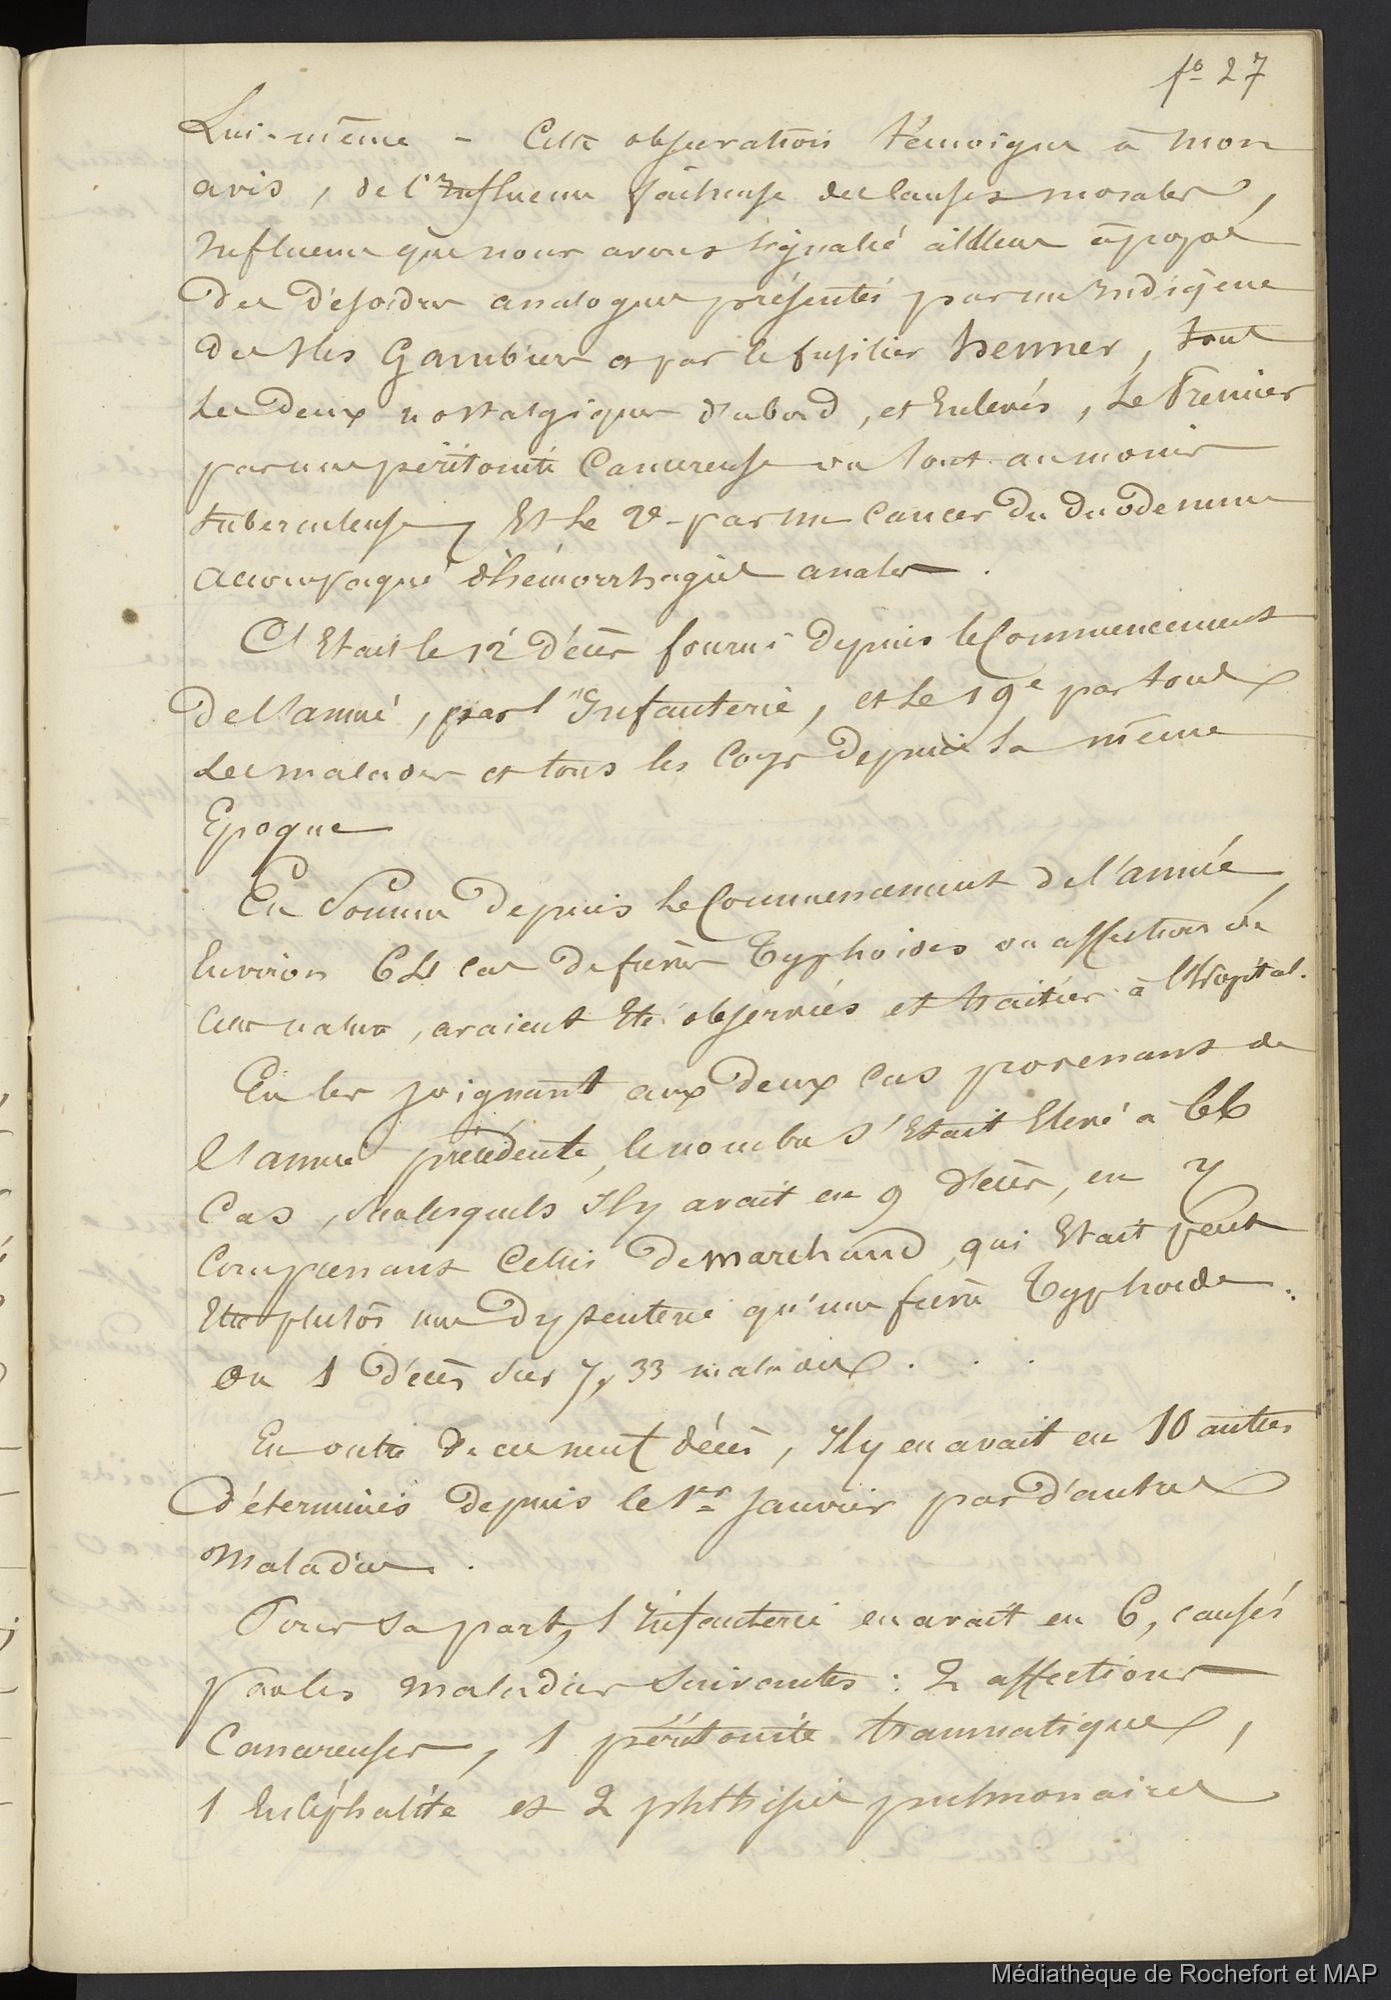 fº 27
Lui-même – Cette observation témoigne à mon
avis, de l'Influence fâcheuse des causes morales,
Influence que nous avons signalée ailleurs àpropos
des désordres analogues présentés par un Indigène
des Iles Gambier et par le fusilier henner, tous
les deux nostalgiques d'abord, et Enlevés, Le Premier
par une péritonite Cancereuse ou tout au moins
tuberculeuse, Et Le 2e par un Cancer du duodenum
accompagné d'hémorrhagies anales.
C'Etait le 12e décès fourni depuis le Commencement
de l'année, par l'Infanterie, et Le 19e par tous
les malades et tous les Corps depuis la même
Epoque
En Somme depuis Le Commencement de l'année,
Environ 64 cas de fièvres Typhoides ou affections de
cette nature, avaient Eté observées et traitées à l'Hopital.
En les joignant aux deux cas provenant de
l'année précédente, le nombre s'Etait Elevé à 66
Cas, Sur lesquels Il y avait eu 9 décès, en y
Comprenant Celui de marchand, qui Etait peut
Etre plutôt une Dysenterie qu'une fièvre Typhoide.
ou 1 décès sur 7,33 malades. . .
En outre de ces neuf décès, Il y en avait eu 10 autres
déterminés depuis le 1er Janvier par d'autres
Maladies.
Pour Sa part, l'Infanterie en avait eu 6, causés
par les maladies Suivantes : 2 affections
Cancereuses, 1 péritonite traumatique,
1 Encéphalite et 2 phthisies pulmonaires
Médiathèque de Rochefort et MAP